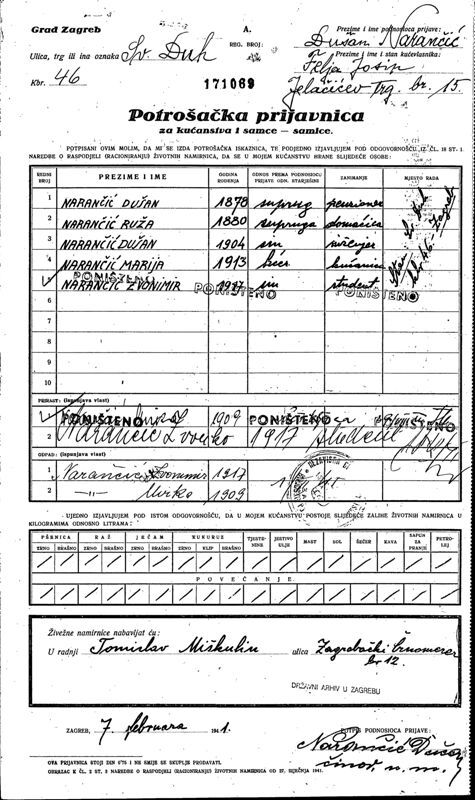 Grad Zagreb
A.
Prezime i ime podnosioca prijave:
Dušan Narančić
Ulica, trg ili ina oznaka Sv. Duh
REG. BROJ:
Prezime i ime i stan kućevlasnika:
Kbr. 46
171069
Jelačićev trg. br. 15.
Potrošačka prijavnica
za kućanstva i samce — samice.
POTPISANI OVIM MOLIM, DA MI SE IZDA POTROŠAČKA ISKAZNICA, TE PODJEDNO IZJAVLJUJEM POD ODGOVORNOŠĆU IZ ČL. 18 ST. 1
NAREDBE O RASPODJELI (RACIONIRANJU) ŽIVOTNIH NAMIRNICA, DA SE U MOJEM KUĆANSTVU HRANE SLIJEDEĆE OSOBE:
REDNI BROJ PREZIME I IME GODINA ROĐENJA ODNOS PREMA PODNOSIOCU PRIJAVE ODN. STARJEŠINI ZANIMANJE MJESTO RADA
1 NARANČIĆ DUŠAN 1878 suprug penzioner
2 NARANČIĆ RUŽA 1880 supruga domaćica
3 NARANČIĆ DUŠAN 1904 sin
4 NARANČIĆ MARIJA 1913 kćer
5 NARANČIĆ ZVONIMIR 1917 sin student
PONIŠTENO PONIŠTENO PONIŠTENO
6
7
8
9
10
PRIRAST: (ispunjava vlast)
1 PONIŠTENO 1909 PONIŠTENO PONIŠTENO
2 Narančić Zvonko 1917
OTPAD: (ispunjava vlast)
1 Narančić Zvonimir 1917
2 —„— Mirko 1909
UJEDNO IZJAVLJUJEM POD ISTOM ODGOVORNOŠĆU, DA U MOJEM KUĆANSTVU POSTOJE SLIJEDEĆE ZALIHE ŽIVOTNIH NAMIRNICA U
KILOGRAMIMA ODNOSNO LITRAMA:
PŠENICA RAŽ JEČAM KUKURUZ TJESTENINE JESTIVO ULJE MAST SOL ŠEĆER KAVA SAPUN ZA PRANJE PETROLEJ
ZRNO BRAŠNO ZRNO BRAŠNO ZRNO BRAŠNO ZRNO KLIP BRAŠNO
POVEĆANJE
Živežne namirnice nabavljat ću:
U radnji Tomislav Miškulin ulica Zagrebački Črnomerec
br 12
DRŽAVNI ARHIV U ZAGREBU
ZAGREB, 7 februara 1941.
POTPIS PODNOSIOCA PRIJAVE:
Narančić Dušan
OVA PRIJAVNICA STOJI DIN 0'75 I NE SMIJE SE SKUPLJE PRODAVATI.
OBRAZAC K ČL. 2 ST. 2 NAREDBE O RASPODJELI (RACIONIRANJU) ŽIVOTNIH NAMIRNICA OD 27. SIJEČNJA 1941.